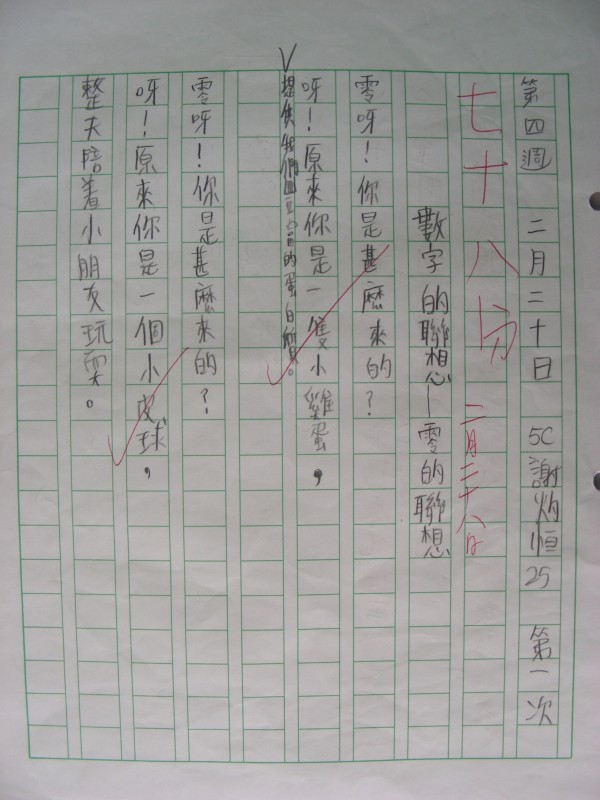 第四週 二月二十日 5C 謝灼恒 25 第一次
七十八分 二月二十八日
數字的聯想—零的聯想
零呀！你是甚麼來的？
呀！原來你是一隻小雞蛋，
提供我們豐富的蛋白質。
零呀！你是甚麼來的？
呀！原來你是一個小皮球，
整天陪着小朋友玩耍。